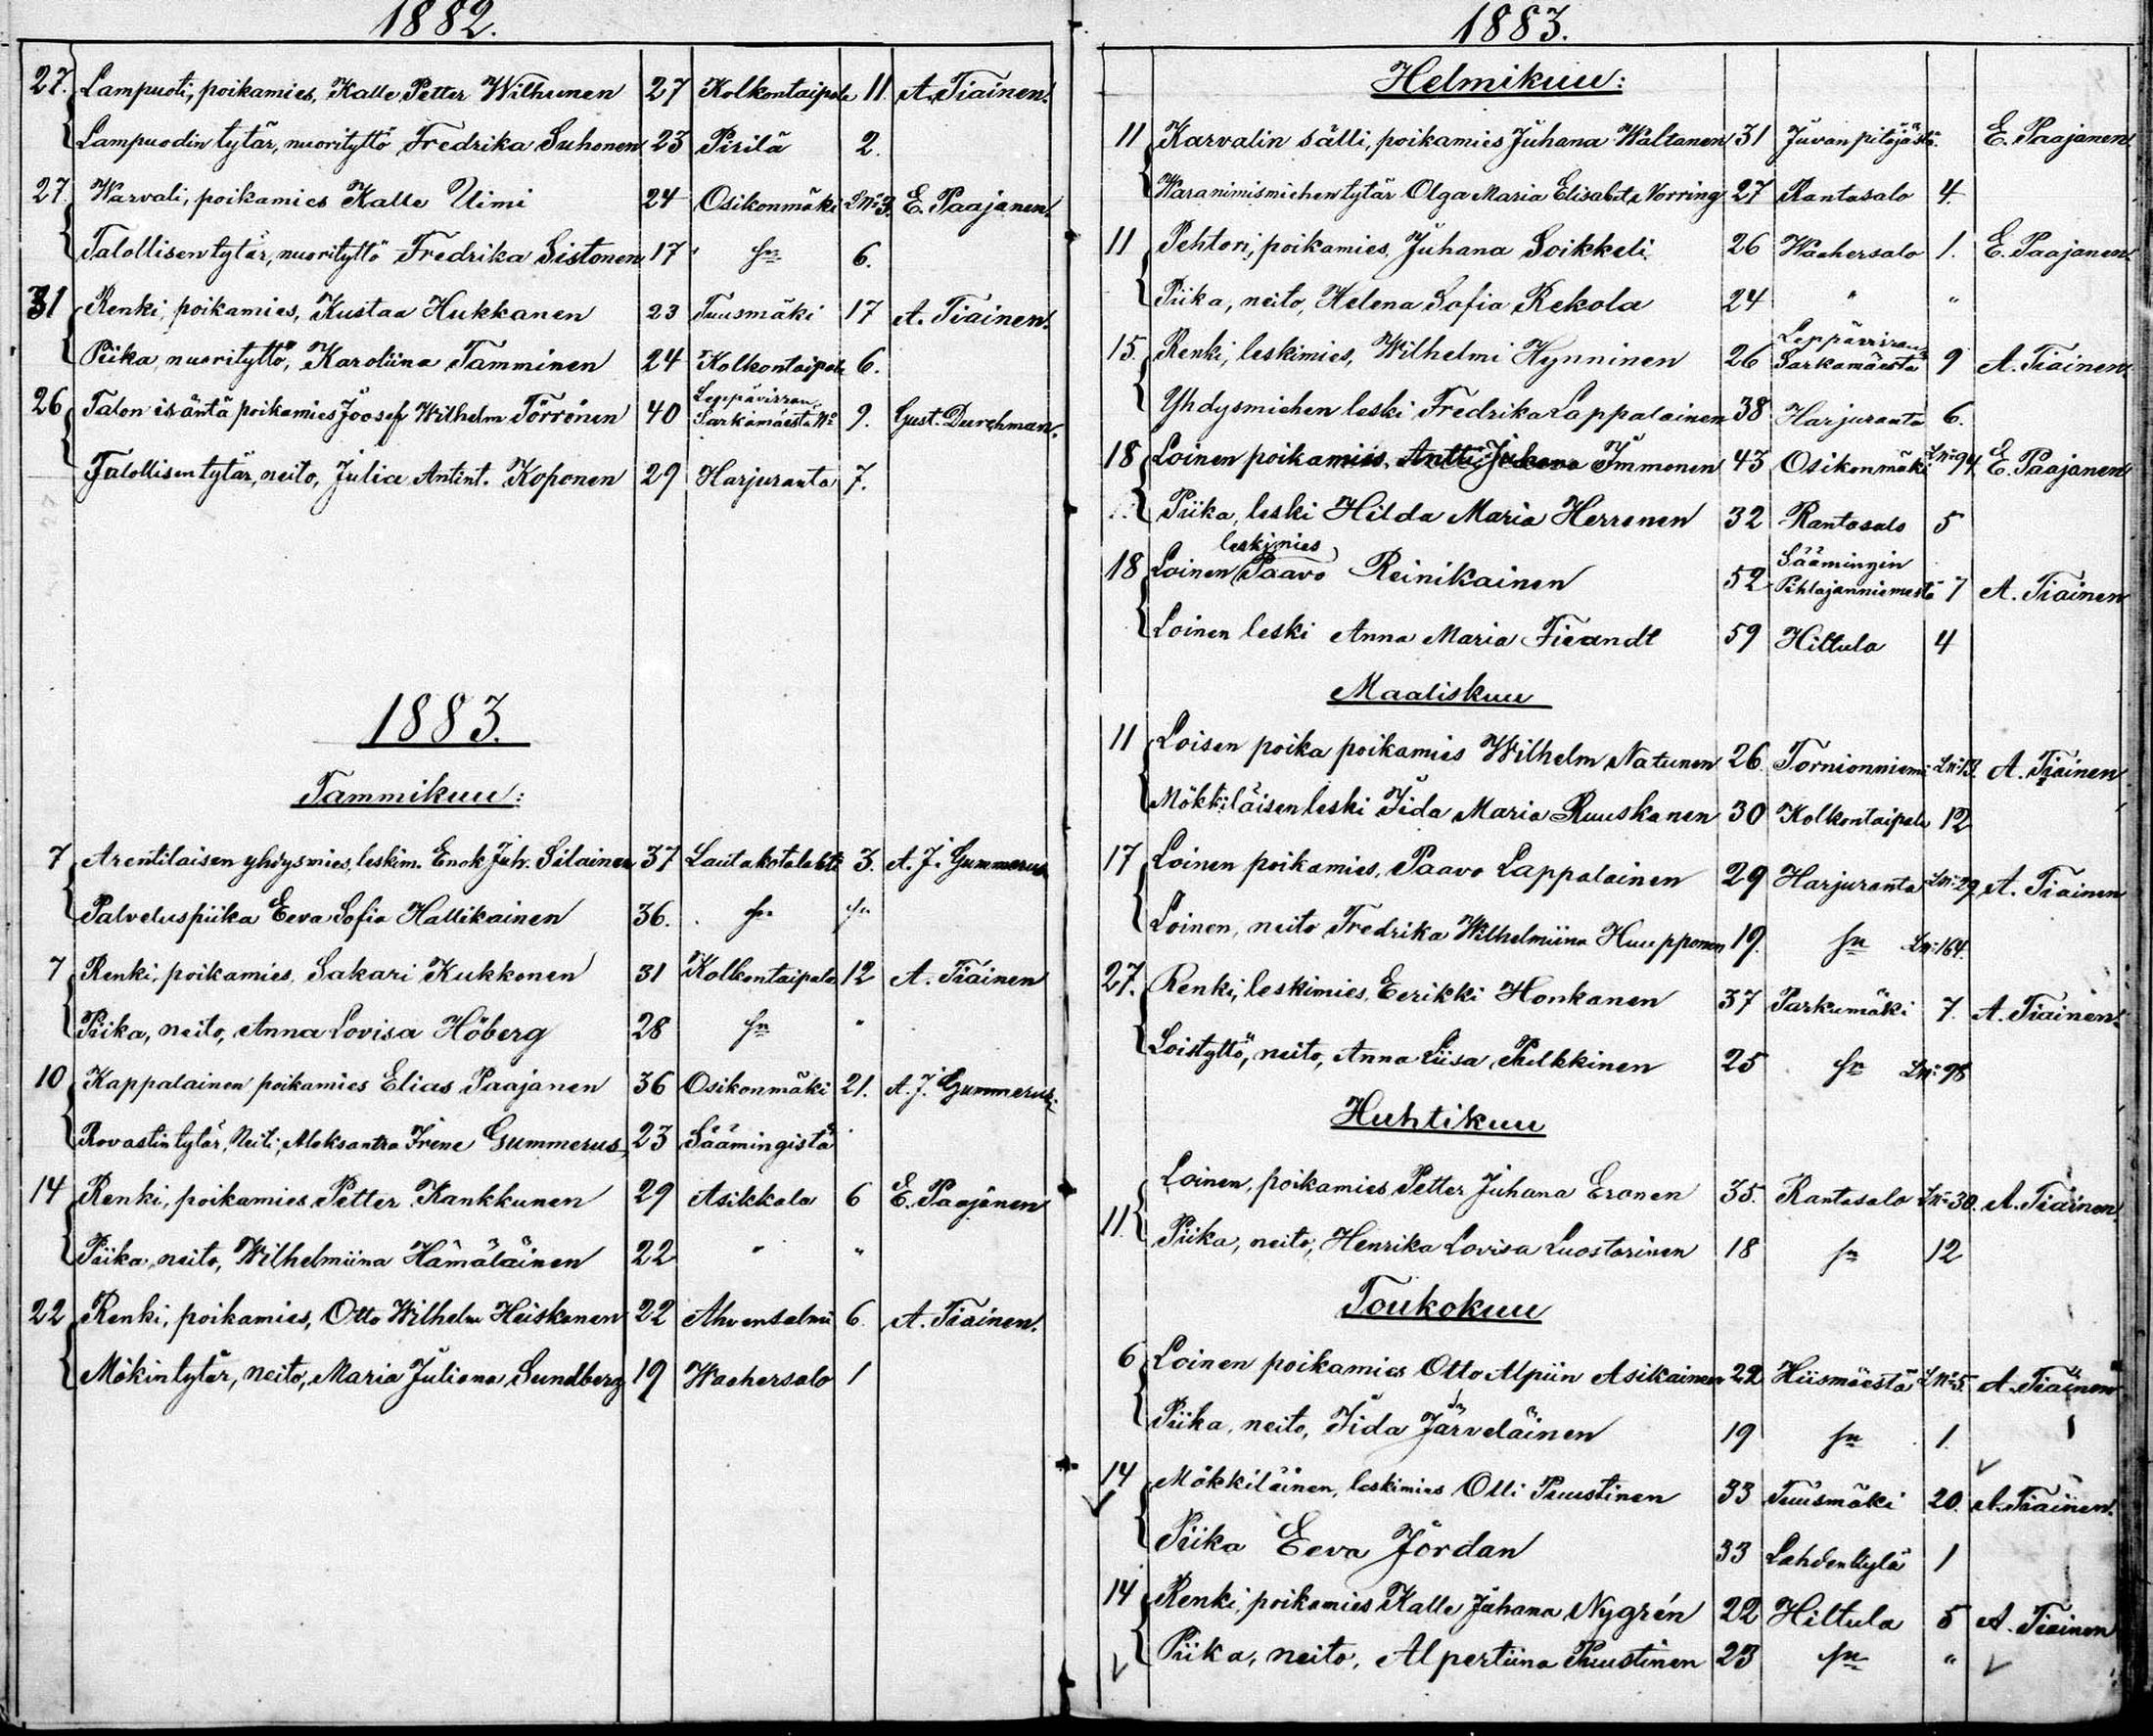 1882.
27. Lampuoti, poikamies, Kalle Petter Wilhunen 27 Kolkontaipale 11. A. Tiainen.
Lampuodin tytär, nuorityttö Fredrika Suhonen 23 Pirilä 2.
27. Warvali, poikamies Kalle Uimi 24 Osikonmäki E. Paajanen.
Talollisen tytär, nuorityttö Fredrika Sistonen 17 sn 6.
31 Renki, poikamies, Kustaa Hukkanen 23 Tuusmäki 17 A. Tiainen.
Piika, nuorityttö, Karoliina Tamminen 24 Kolkontaipale 6.
26 Talon isäntä poikamies Joosef Wilhelm Törrönen 40 Leppävirran Sarkamäestä No 9. Gust. Durchman.
Talollisen tytär, neito, Julia Antint. Koponen 29 Harjuranta 7.
1883.
Tammikuu:
7 Arentilaisen yhdysmies, leskim. Enok Juh. Silainen 37 Lautakotalahti 3. A. J. Gummerus
Palveluspiika Eeva Sofia Hallikainen 36. sn sn
7 Renki, poikamies, Sakari Kukkonen 31 Kolkontaipale 12 A. Tiainen
Piika, neito, Anna Lovisa Höberg 28 sn "
10 Kappalainen poikamies Elias Paajanen 36 Osikonmäki 21. A. J. Gummerus.
Rovastin tytär, Neiti, Aleksantra Irene Gummerus, 23 Säämingistä
14 Renki, poikamies Petter Kankkunen 29 Asikkala 6 E. Paajanen
Piika, neito, Wilhelmiina Hämäläinen 22 " "
22 Renki, poikamies, Otto Wilhelm Heiskanen 22 Ahvensalmi 6. A. Tiainen.
Mökin tytär, neito, Maria Juliana Sundberg 19 Waahersalo 1
1883.
Helmikuu:
11 Karvalin sälli, poikamies Juhana Waltanen 31 Juvan pitäjästä. E. Paajanen
Waranimismiehen tytär Olga Maria Elisabet Norring 27 Rantasalo 4.
11 Pehtori, poikamies, Juhana Soikkeli 26 Waahersalo 1. E. Paajanen.
Piika, neito, Helena Sofia Rekola 24 " "
15. Renki, leskimies, Wilhelmi Hynninen 26 Leppävirran Sarkamäestä 9 A. Tiainen.
Yhdysmiehen leski Fredrika Lappalainen 38 Harjuranta 6.
18 Loinen poikamies, Antti Juhana Immonen 43 Osikonmäki Lno 94. E. Paajanen
Piika, leski Hilda Maria Herronen 32 Rantasalo 5
18 Loinen leskimies Paavo Reinikainen 52 Säämingin Pihlajanniemestä 7 A. Tiainen
Loinen leski Anna Maria Fieandt 59 Hiltula 4
Maaliskuu
11 Loisen poika poikamies Wilhelm Natunen 26. Tornionniemi Lno 13. A. Tiainen
Mökkiläisen leski Iida Maria Ruuskanen 30 Kolkontaipale 12
17 Loinen poikamies, Paavo Lappalainen 29 Harjuranta Lno 29 A. Tiainen
Loinen, neito Fredrika Wilhelmiina Huupponen 19. sn Lno 164.
27. Renki, leskimies, Eerikki Honkanen 37 Parkumäki 7. A. Tiainen.
Loistyttö, neito, Anna Liisa Pulkkinen 25 sn Lno 98
Huhtikuu
11. Loinen, poikamies Petter Juhana Eronen 35. Rantasalo Lno 30. A. Tiainen
Piika, neito, Henrika Lovisa Luostarinen 18 sn 12
Toukokuu
6 Loinen poikamies Otto Alpiin Asikainen 22 Hiismäestä Lno 5. A. Tiainen
Piika, neito, Iida Järveläinen 19 sn 1.
14 Mökkiläinen, leskimies Olli Puustinen 33 Tuusmäki 20. A. Tiainen.
Piika Eeva Jordan 33 Lahdenkylä 1
14 Renki, poikamies Kalle Juhana Nygrén 22 Hiltula 5 A. Tiainen
Piika, neito, Alpertiina Puustinen 23 sn "